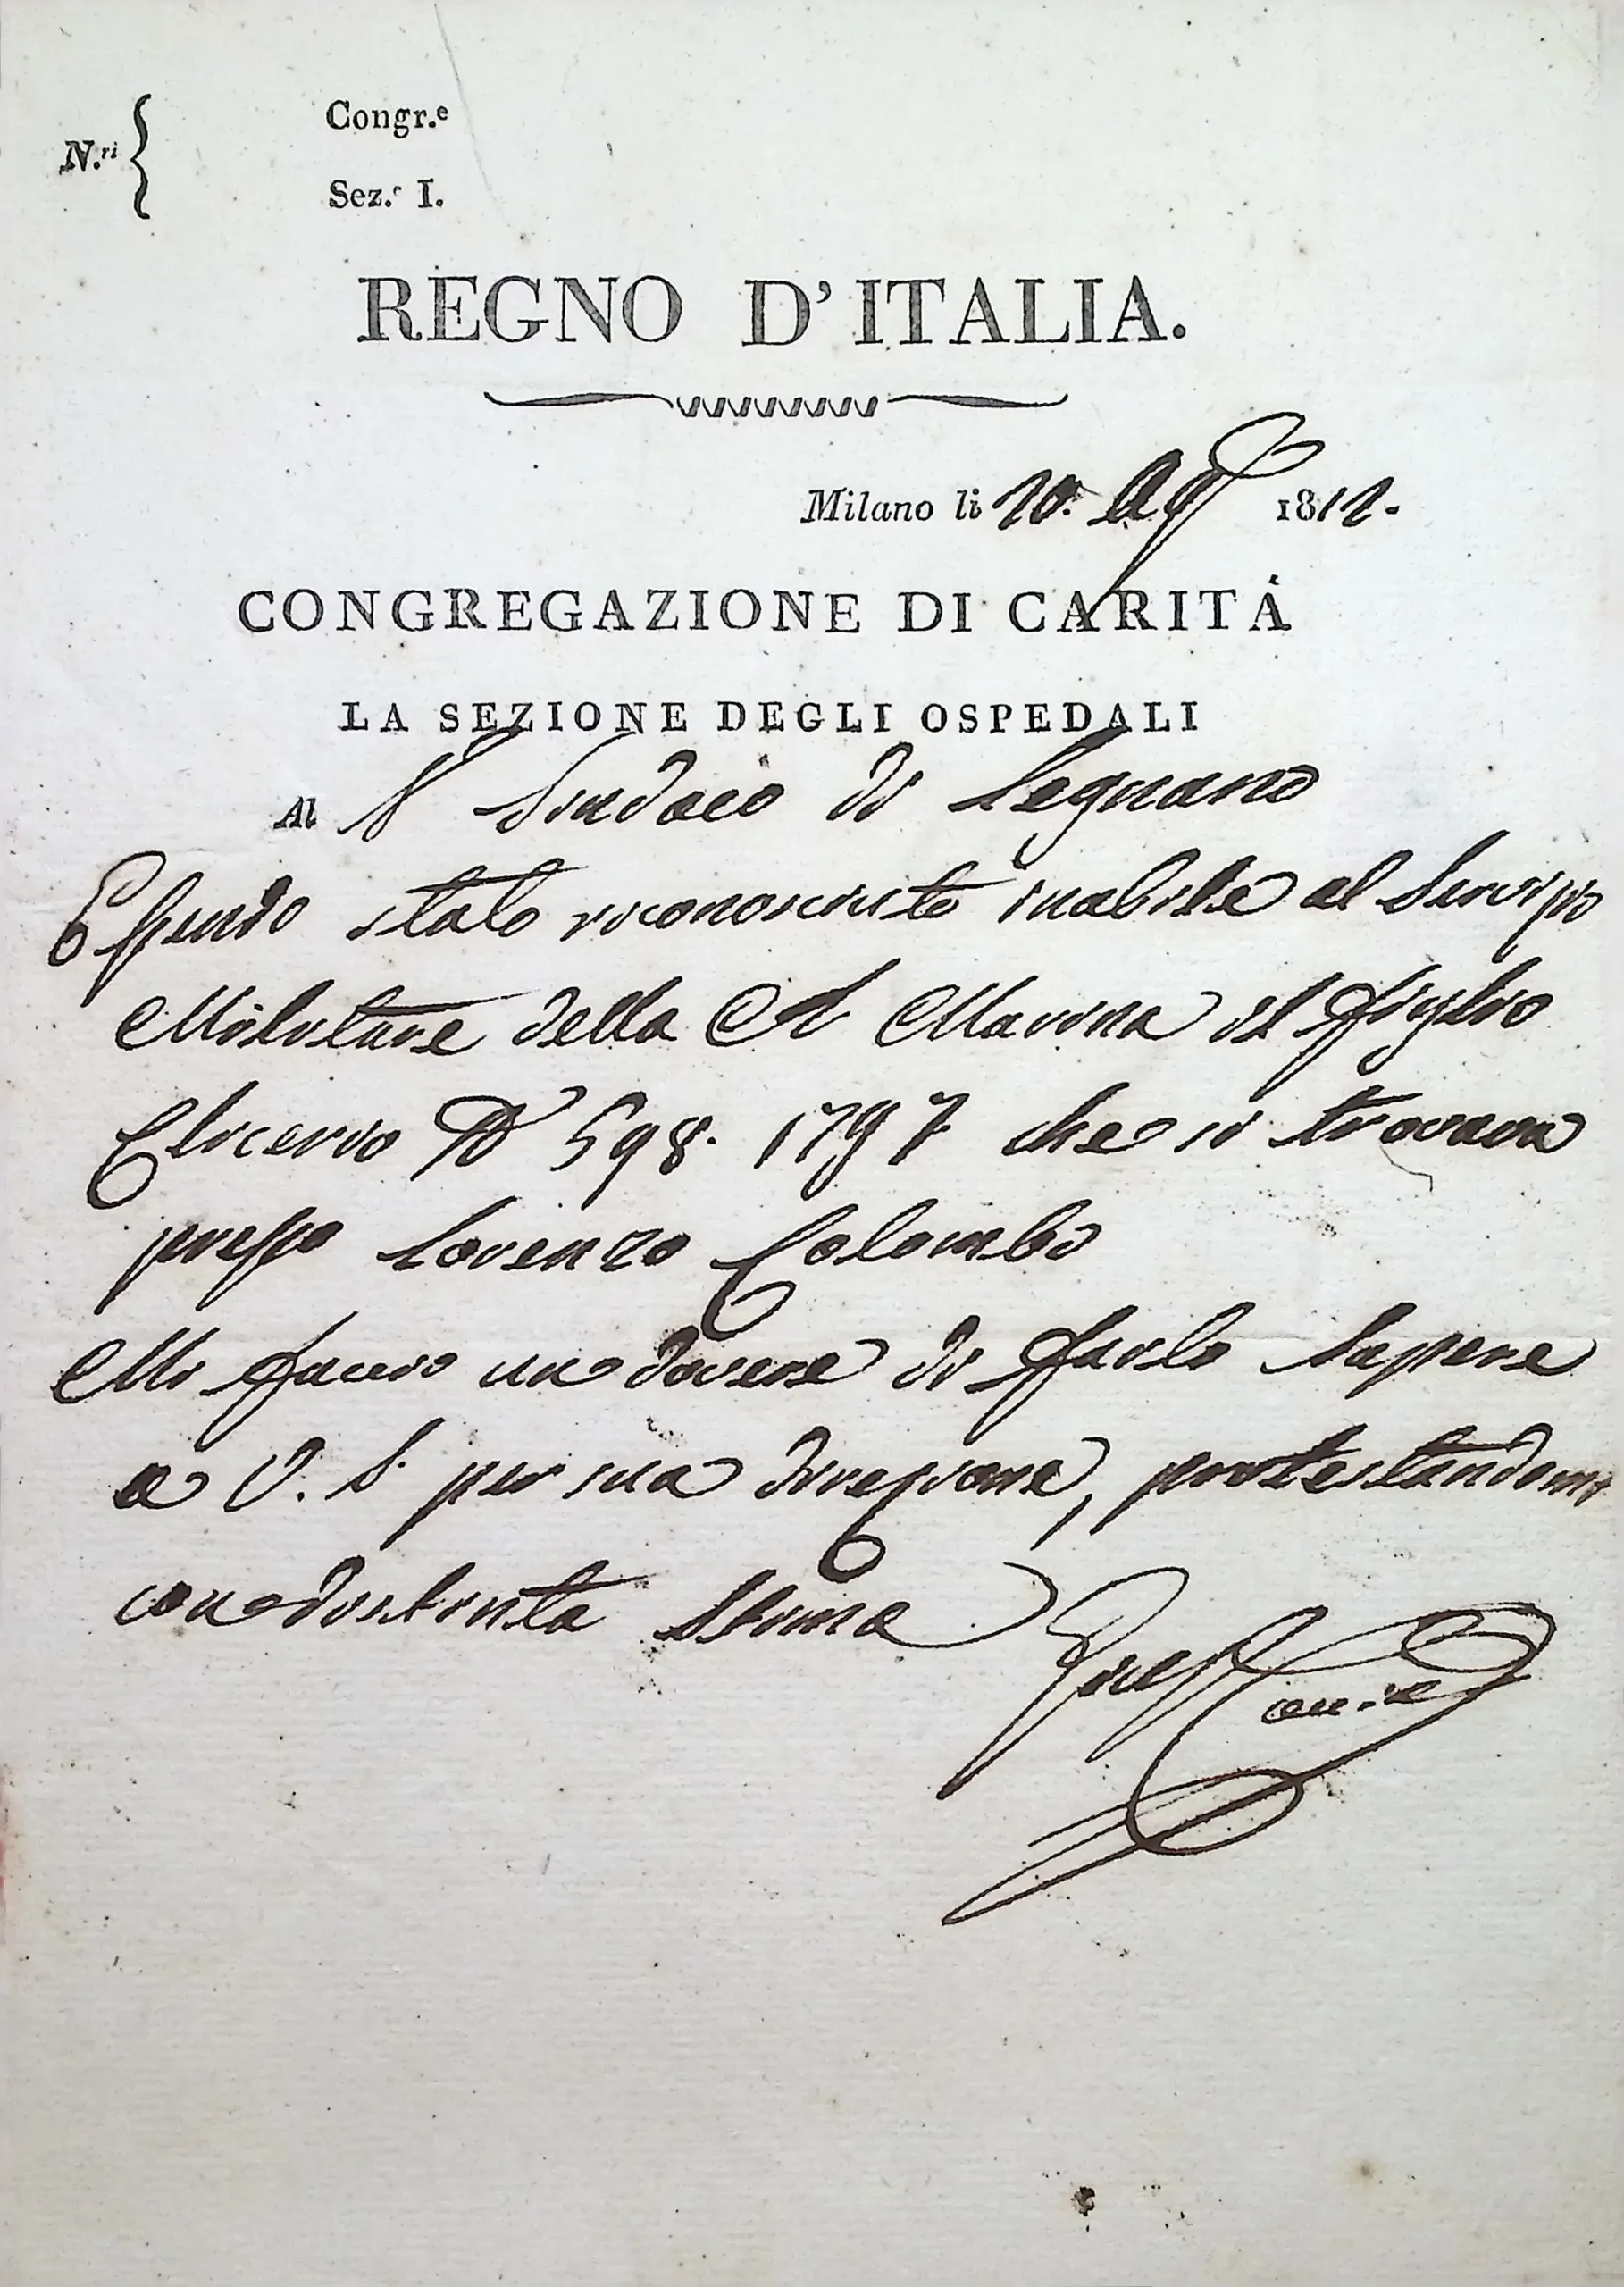 N.ri { Congr.e
Sez.e I.
REGNO D'ITALIA.
Milano li 20. Ag 1812.
CONGREGAZIONE DI CARITÀ
LA SEZIONE DEGLI OSPEDALI
Al S Sindaco di Legnano
Essendo stato riconosciuto inabile al Servizio
Militare della R Marina il figlio
Elicerio N 598. 1797 che si trovava
presso Lorenzo Colombo
Mi faccio un dovere di farlo sapere
a V. S. per sua direzione, protestandomi
con distinta Stima